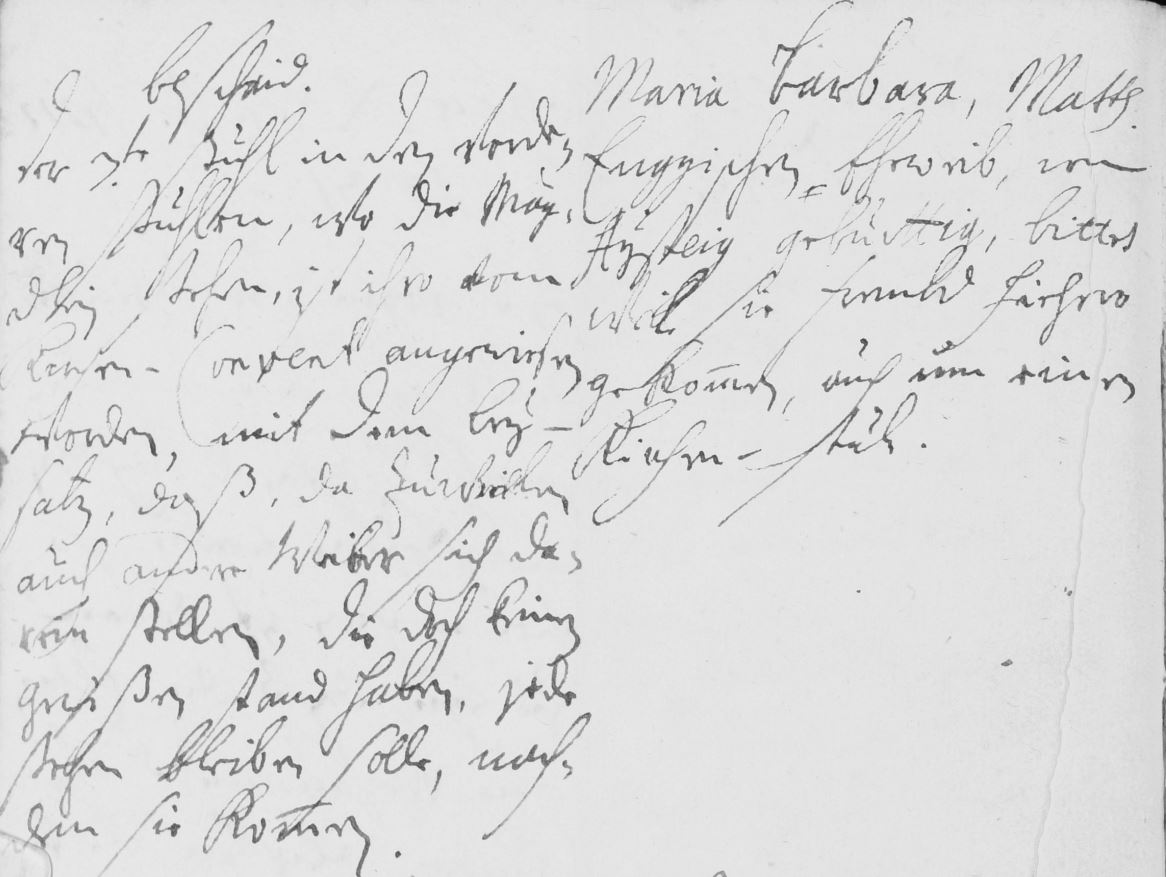 bescheid.
der 7te Stuhl in den vorde
ren Stühlen, wo die Mäg-
dlein stehen, ist ihro vom
Kirchen-Convent angewiesen
worden, mit dem bey-
satz, daß, da zuweilen
auch andere Weiber sich da-
rein stellen, die doch keinen
gewißen stand haben, jede
stehen bleiben solle, nach-
dem sie kom̄en.
Maria Barbara, Matth.
Eheweib, von
gebürttig, bittet
weil sie fremd hiehero
gekom̄en, auch um einen
Kirchen-stuhl.